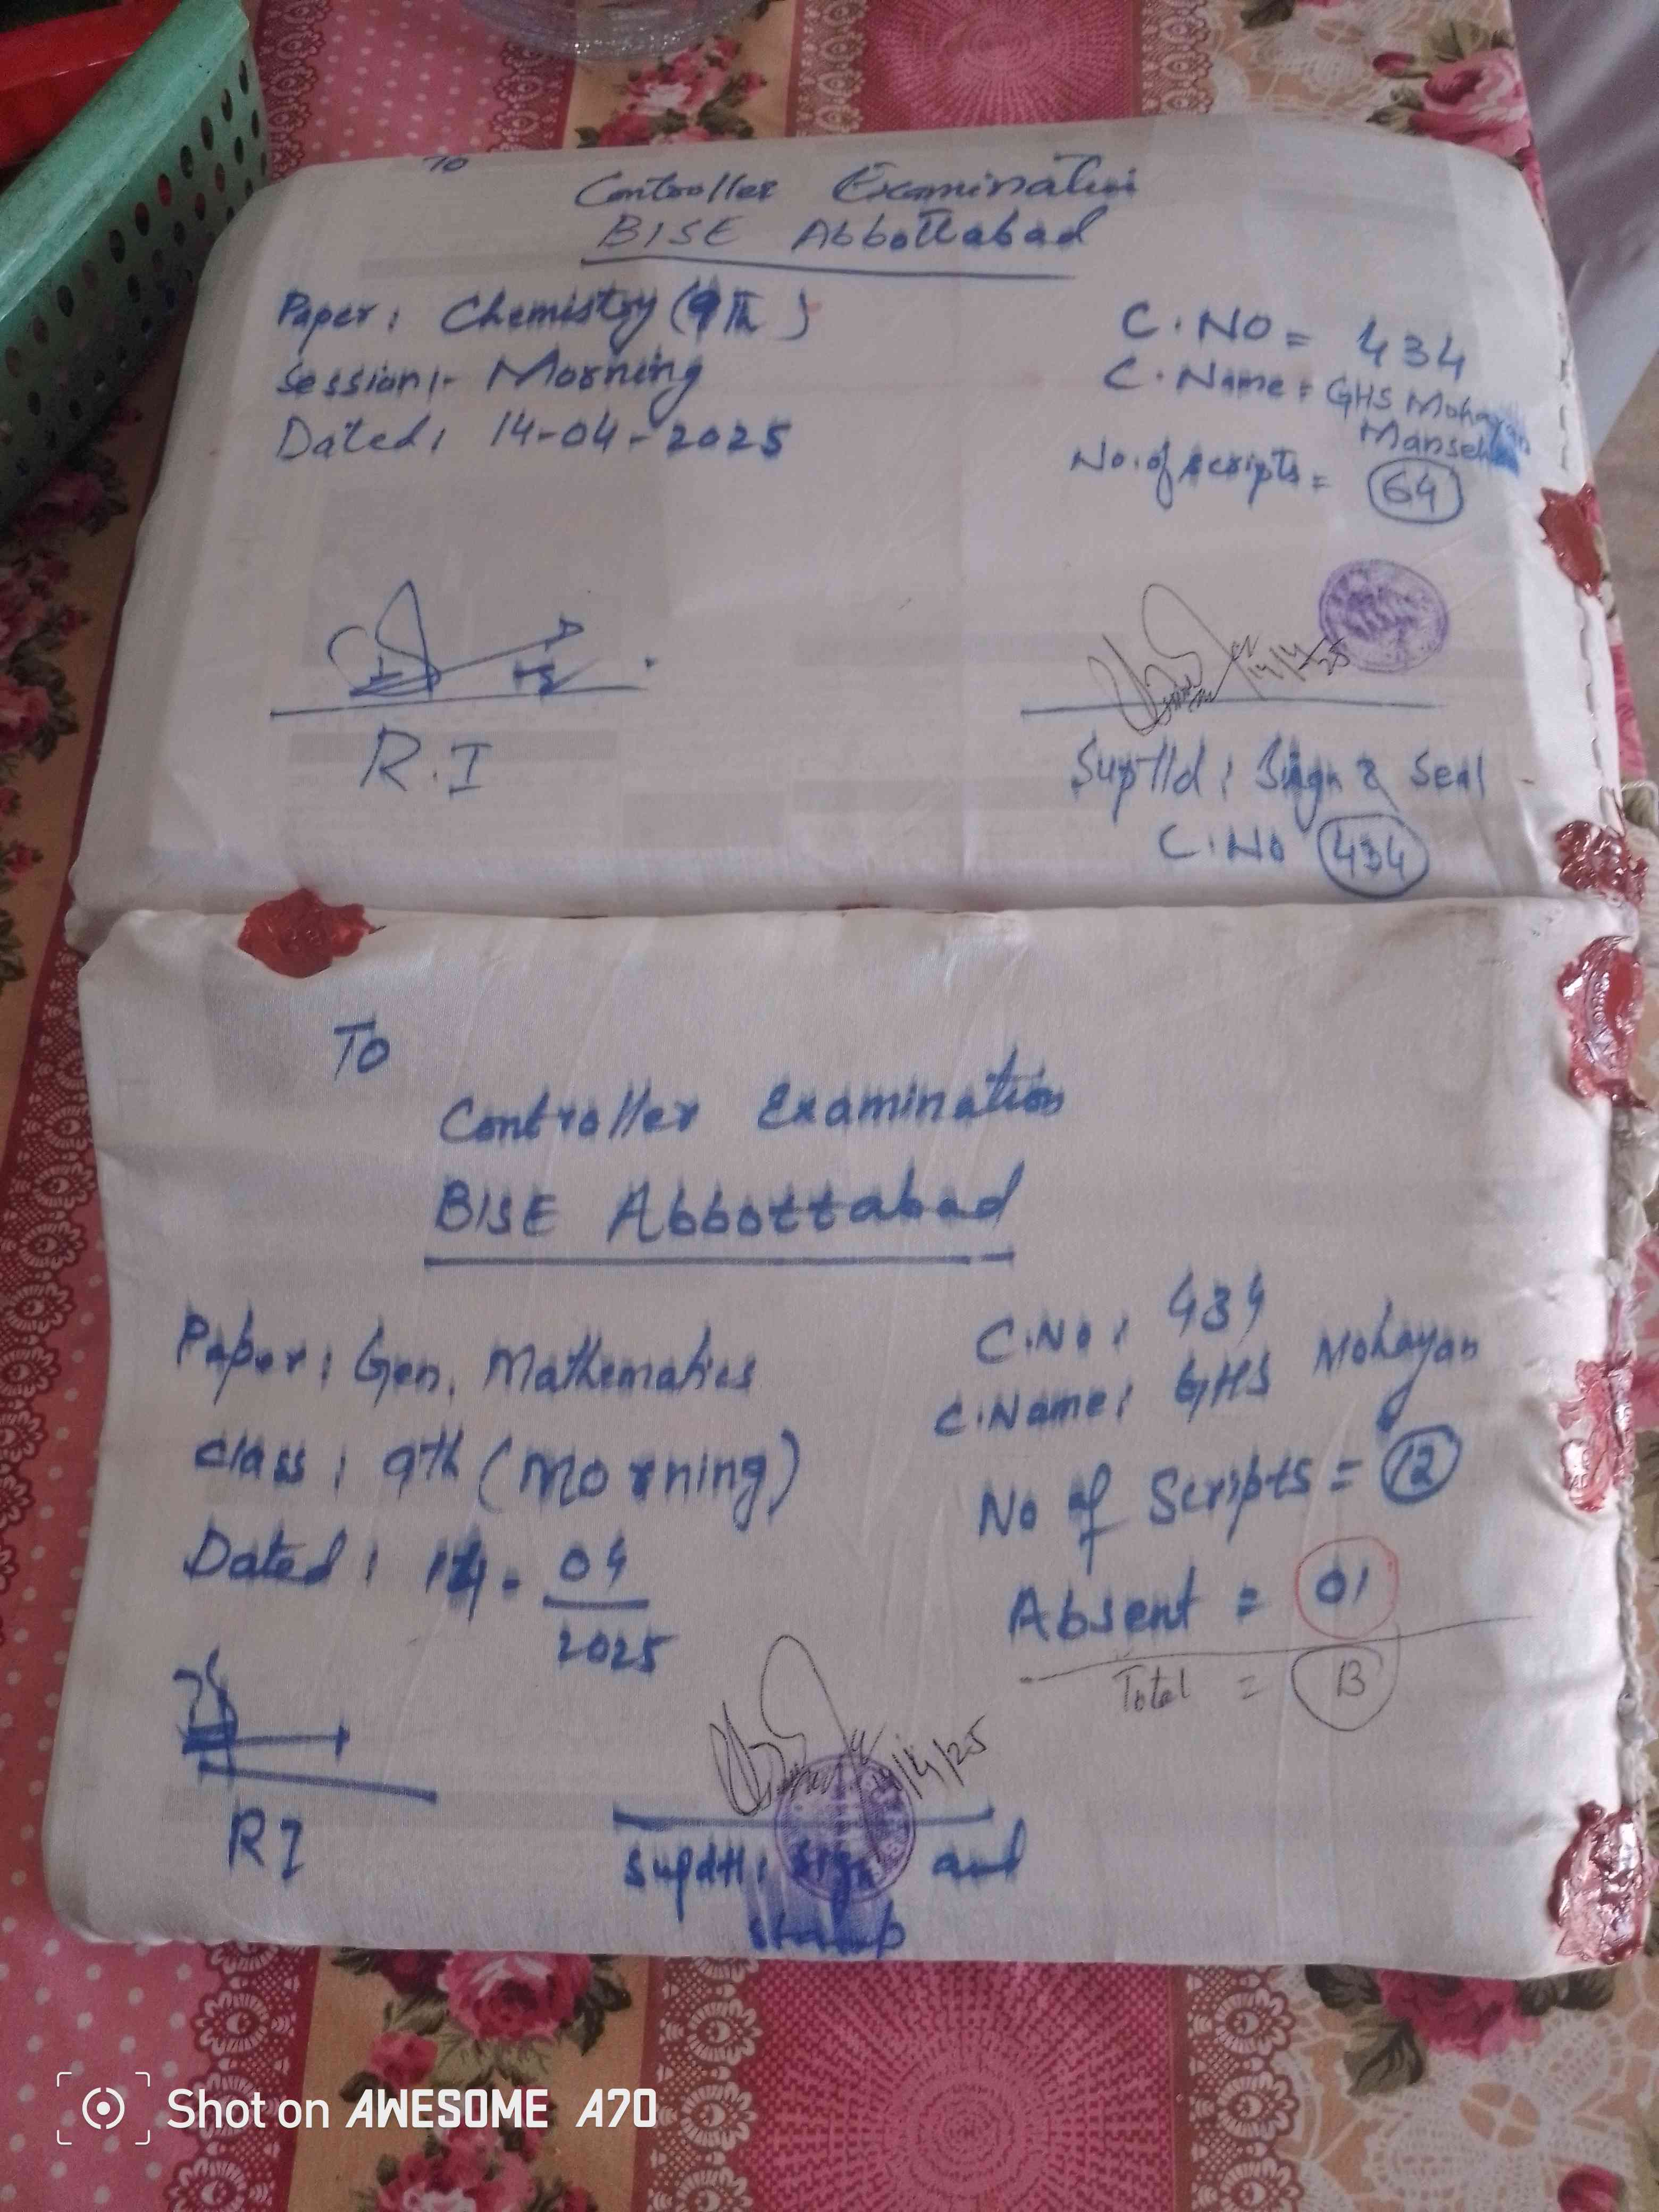 To
Controller Examination
BISE Abbottabad
Paper: Chemistry (9th)
Session:- Morning
Dated: 14-04-2025
C.NO = 434
C.Name = GHS Mohayan
Mansehra
No. of scripts = 64
14/4/25
R.I
Suptld: Sign & Seal
C.No 434
To
Controller Examination
BISE Abbottabad
Paper: Gen. Mathematics
Class: 9th (Morning)
Dated: 14-04
2025
C.No: 434
C.Name: GHS Mohayan
No of Scripts = 12
Absent = 01
Total = 13
14/4/25
RI
Supdtt: Sign and
stamp
Shot on AWESOME A70